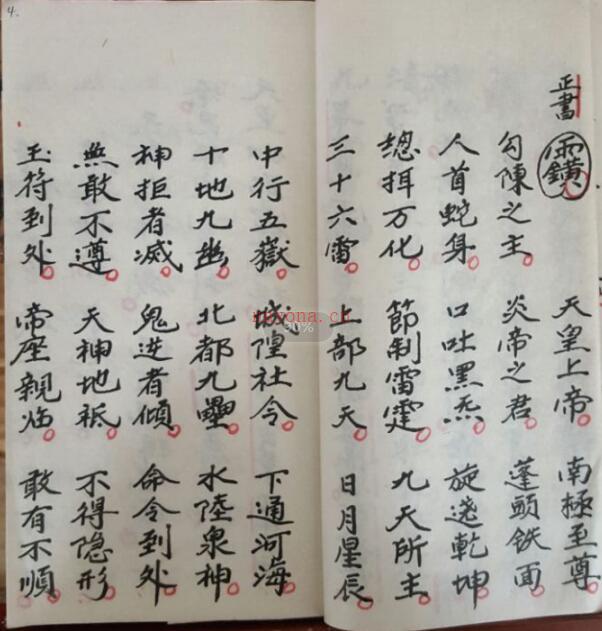 4.
正書 天皇上帝 南極至尊
勾陳之主 炎帝之君 蓬頭铁面
人首蛇身 口吐黑炁 旋遶乾坤
總挕万化 節制雷霆 九天所主
三十六雷 上部九天 日月星辰
中行五嶽 城隍社令 下通河海
十地九幽 北都九壘 水陸泉神
神拒者滅 鬼進者傾 命令到处
無敢不遵 天神地祇 不得隐形
玉符到处 帝座親临 敢有不順
30%